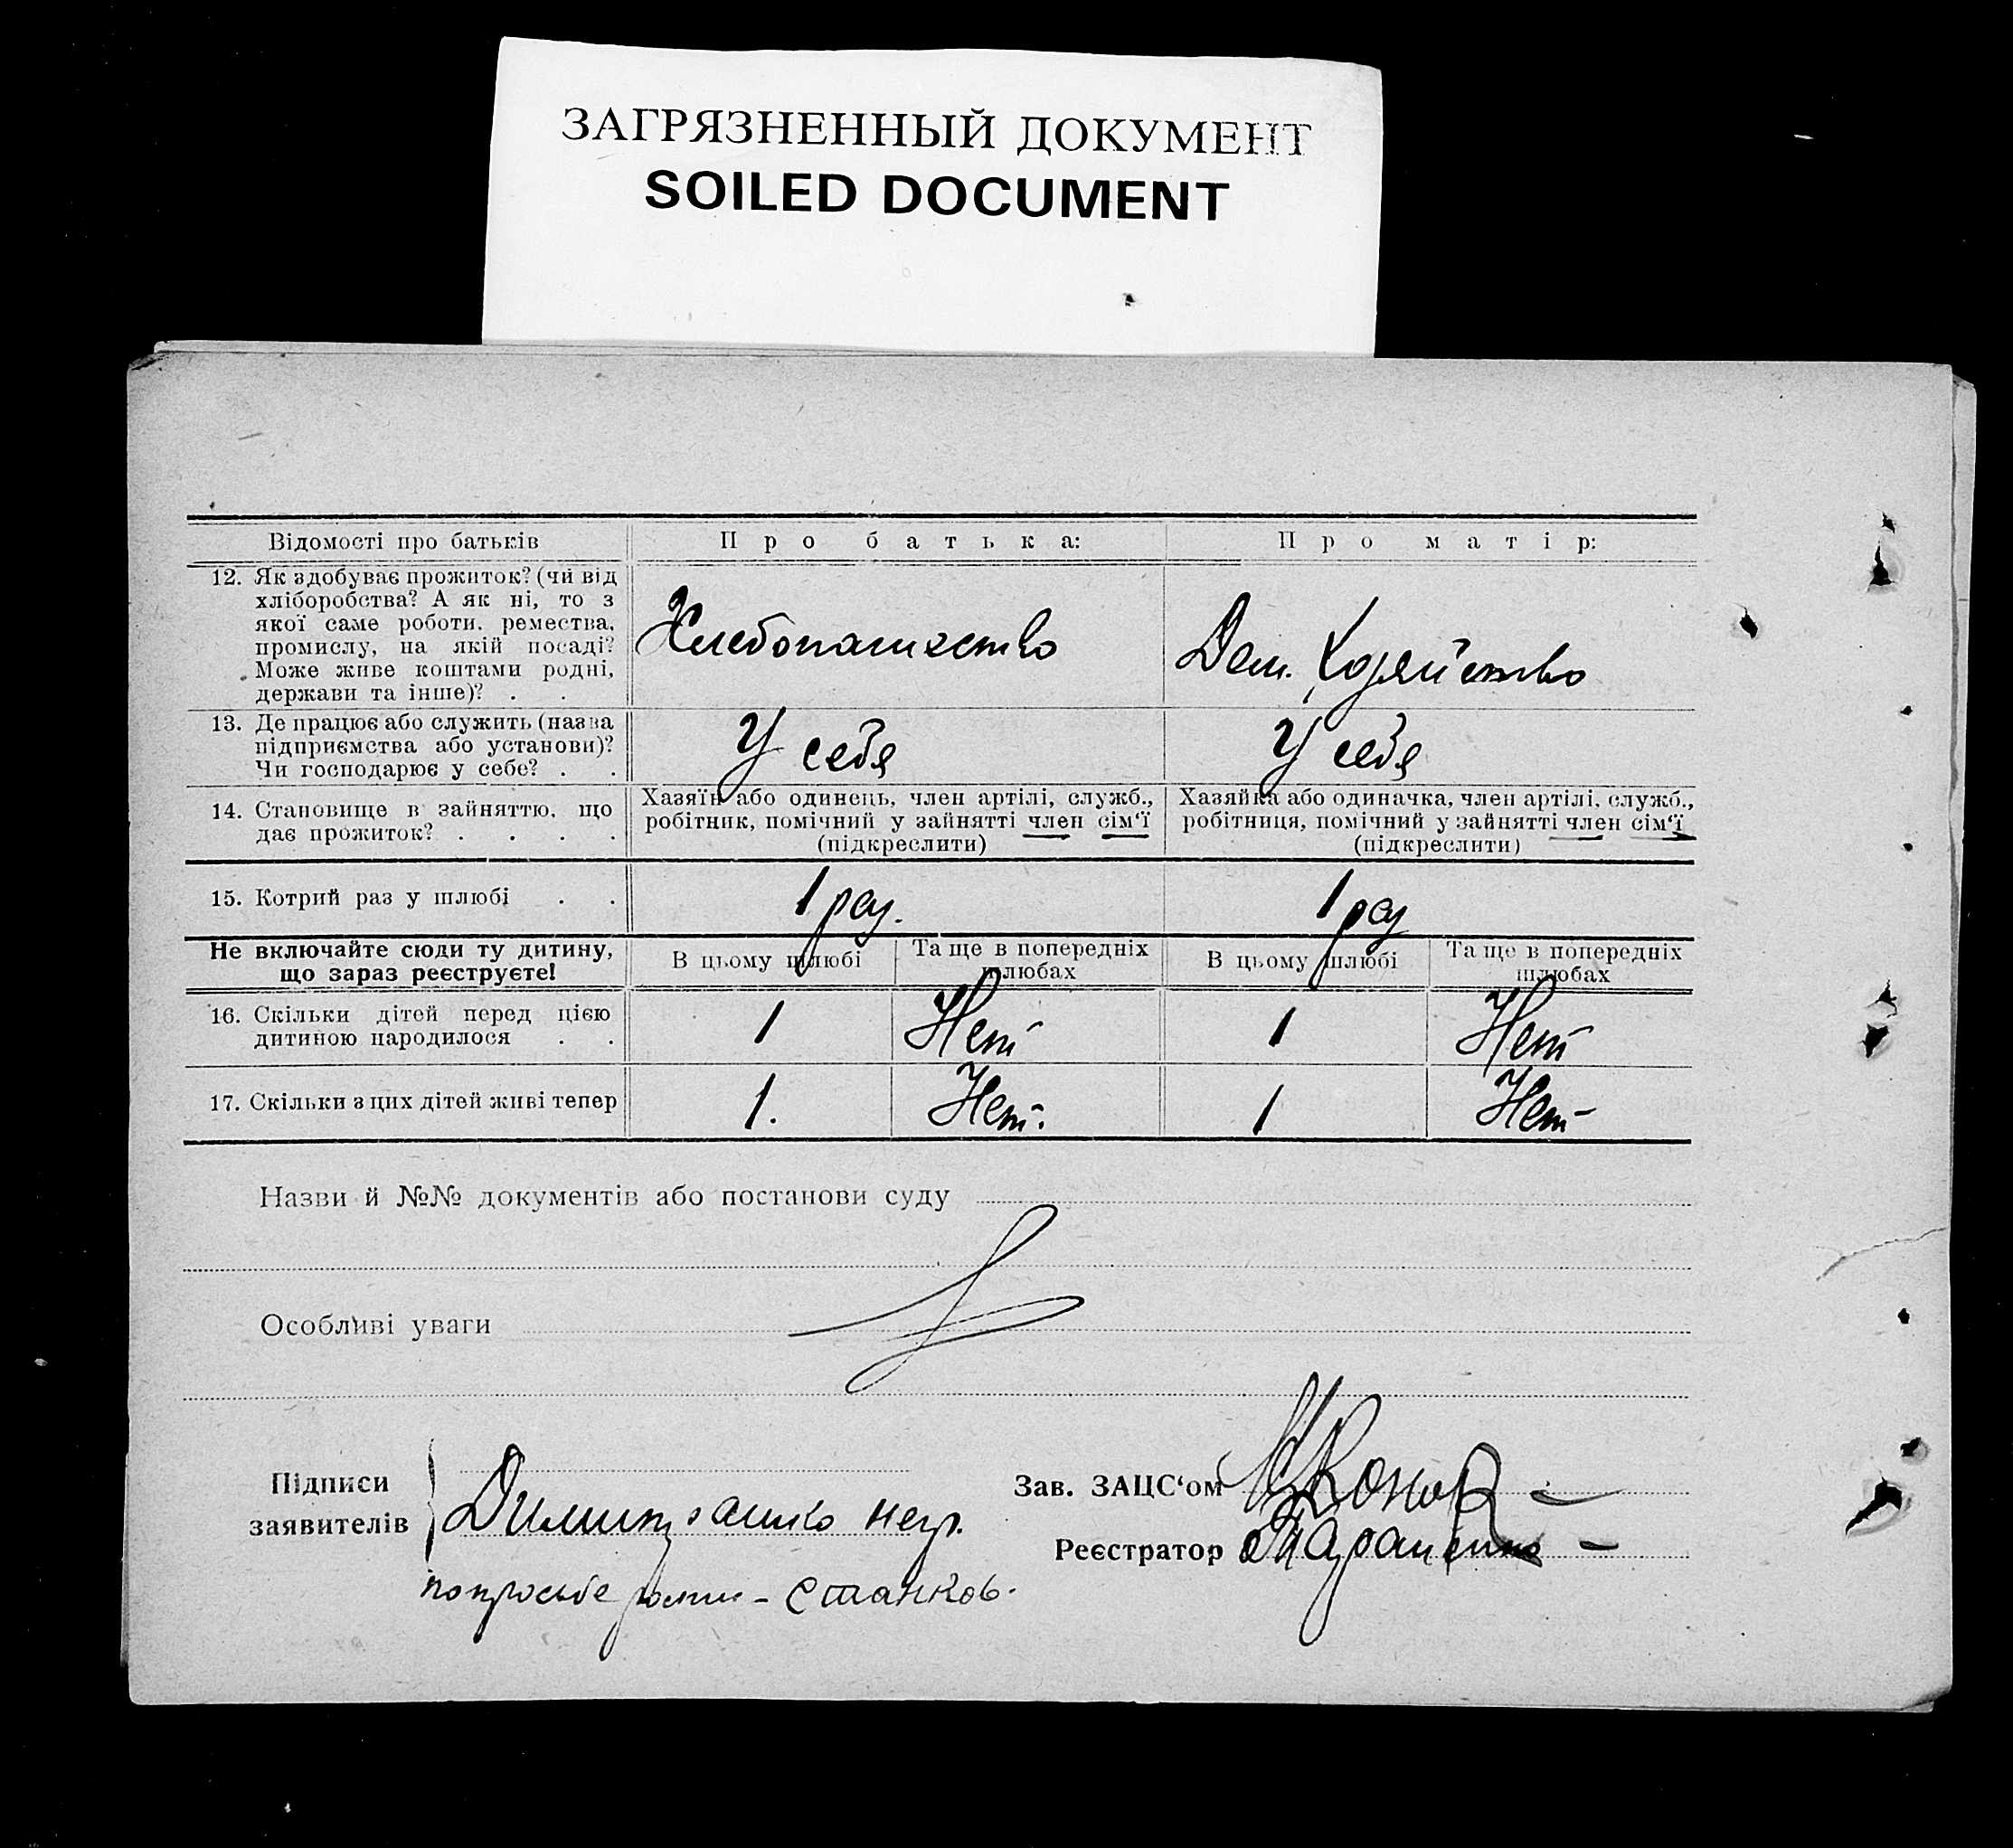 ЗАГРЯЗНЕННЫЙ ДОКУМЕНТ
SOILED DOCUMENT
Відомості про батьків
Про батька:
Про матір:
12. Як здобуває прожиток? (чи від
хліборобства? А як ні, то з
якої саме роботи, ремества,
промислу, на якій посаді?
Може живе коштами родні,
держави та інше)? . .
Хлебопашество
Дом. Хозяйство
13. Де працює або служить (назва
підприємства або установи)?
Чи господарює у себе? . .
У себя
У себя
14. Становище в зайняттю, що
дає прожиток? . . . .
Хазяїн або одинець, член артілі, служб.,
робітник, помічний у зайнятті член сім‘ї
(підкреслити)
Хазяйка або одиначка, член артілі, служб.,
робітниця, помічний у зайнятті член сім‘ї
(підкреслити)
15. Котрий раз у шлюбі . .
1 раз.
1 раз
Не включайте сюди ту дитину,
що зараз реєструєте!
В цьому шлюбі
Та ще в попередніх
шлюбах
В цьому шлюбі
Та ще в попередніх
шлюбах
16. Скільки дітей перед цією
дитиною народилося . .
1
Нет
1
Нет
17. Скільки з цих дітей живі тепер
1.
Нет.
1
Нет
Назви й №№ документів або постанови суду
Особливі уваги
Підписи
заявителів
негр.
по просьбе Станков.
Зав. ЗАЦС‘ом
Реєстратор